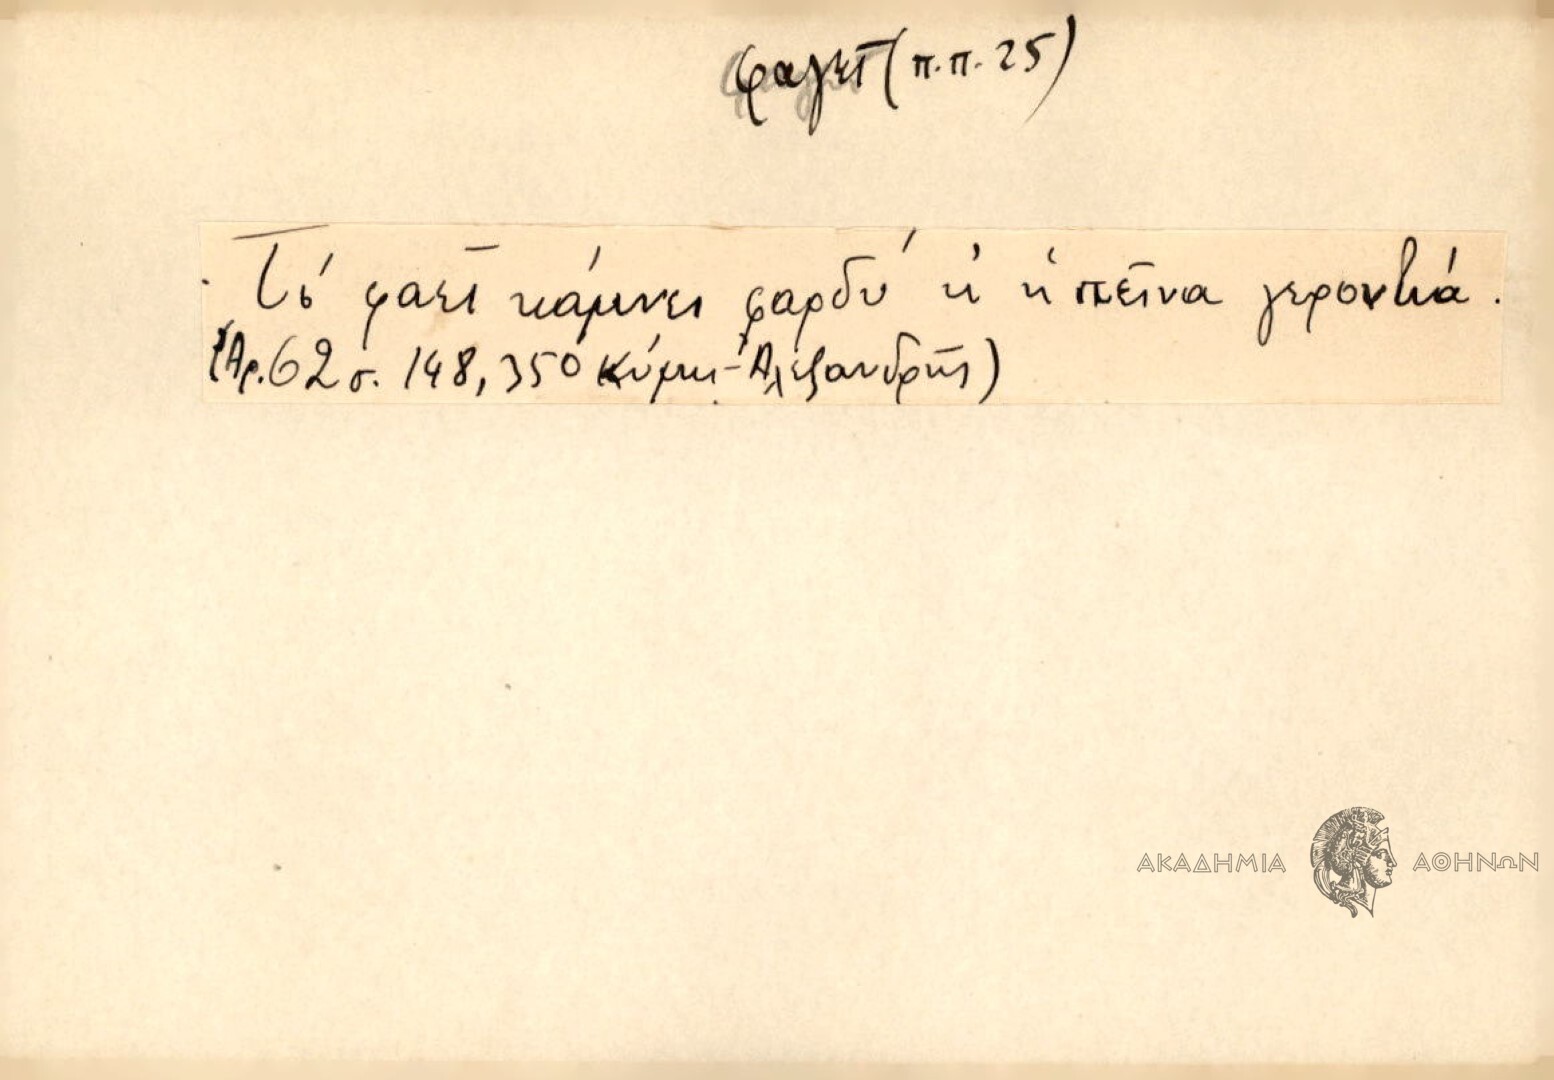 φαγεῖ (π.π. 25)
Τό φαεῖ κάμνει φαρδύ κ' ἡ πεῖνα γεροντιά.
(Ἀρ. 62 σ. 148, 350 Κύμη - Ἀλεξανδρῆς)
ΑΚΑΔΗΜΙΑ ΑΘΗΝΩΝ